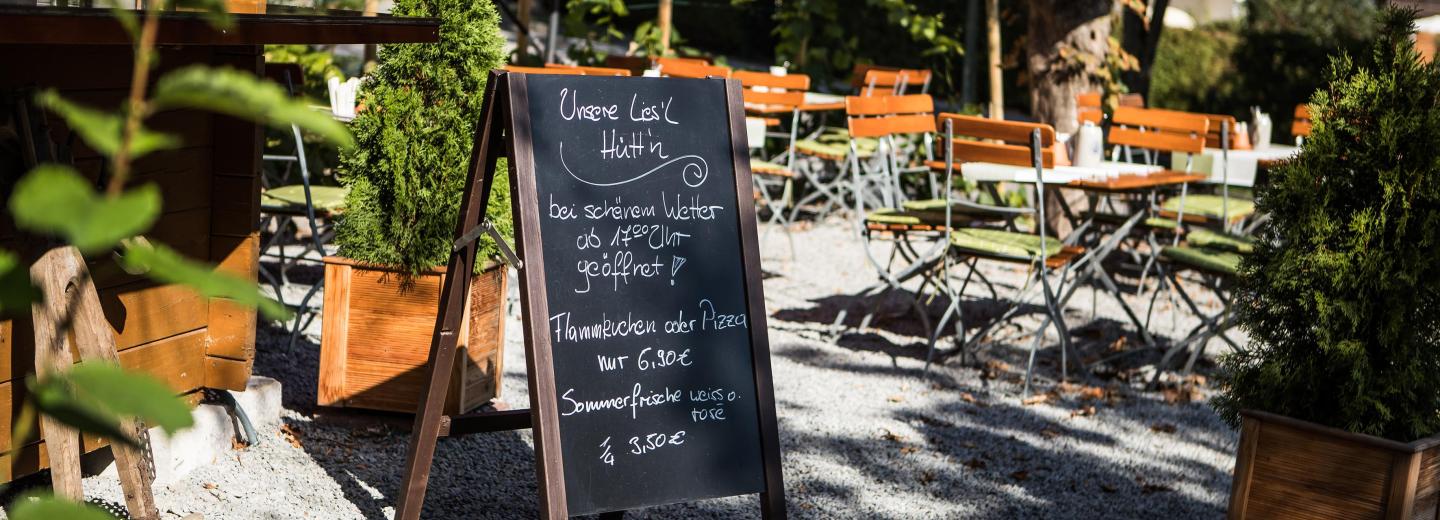 Unsere Lies'l
Hütt'n
bei schönem Wetter
ab 17⁰⁰ Uhr
geöffnet!
Flammkuchen oder Pizza
nur 6,90€
Sommerfrische weiss o.
rosé
1/4 3,50€